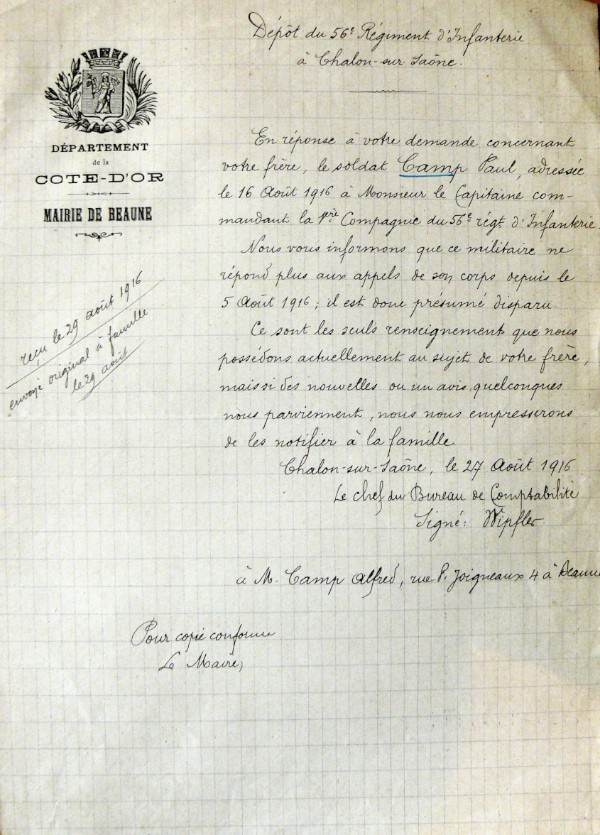 Dépôt du 56e Régiment d'Infanterie
à Chalon-sur Saône.
DÉPARTEMENT
de la
COTE-D'OR
MAIRIE DE BEAUNE
En réponse à votre demande concernant
votre frère, le soldat Camp Paul, adressée
le 16 Août 1916 à Monsieur le Capitaine com-
mandant la 1ère Compagnie du 56e régt d'Infanterie.
Nous vous informons que ce militaire ne
répond plus aux appels de son corps depuis le
5 Août 1916; il est donc présumé disparu.
Ce sont les seuls renseignement que nous
possédons actuellement au sujet de votre frère,
mais si des nouvelles ou un avis quelconques
nous parviennent, nous nous empresserons
de les notifier à la famille
Chalon-sur-Saône, le 27 Août 1916
Le chef du Bureau de Comptabilité
Signé: Wipfler
reçu le 29 août 1916
envoyé original à famille
le 29 août
à M. Camp Alfred, rue P. Joigneaux 4 à Beaune
Pour copie conforme
Le Maire,